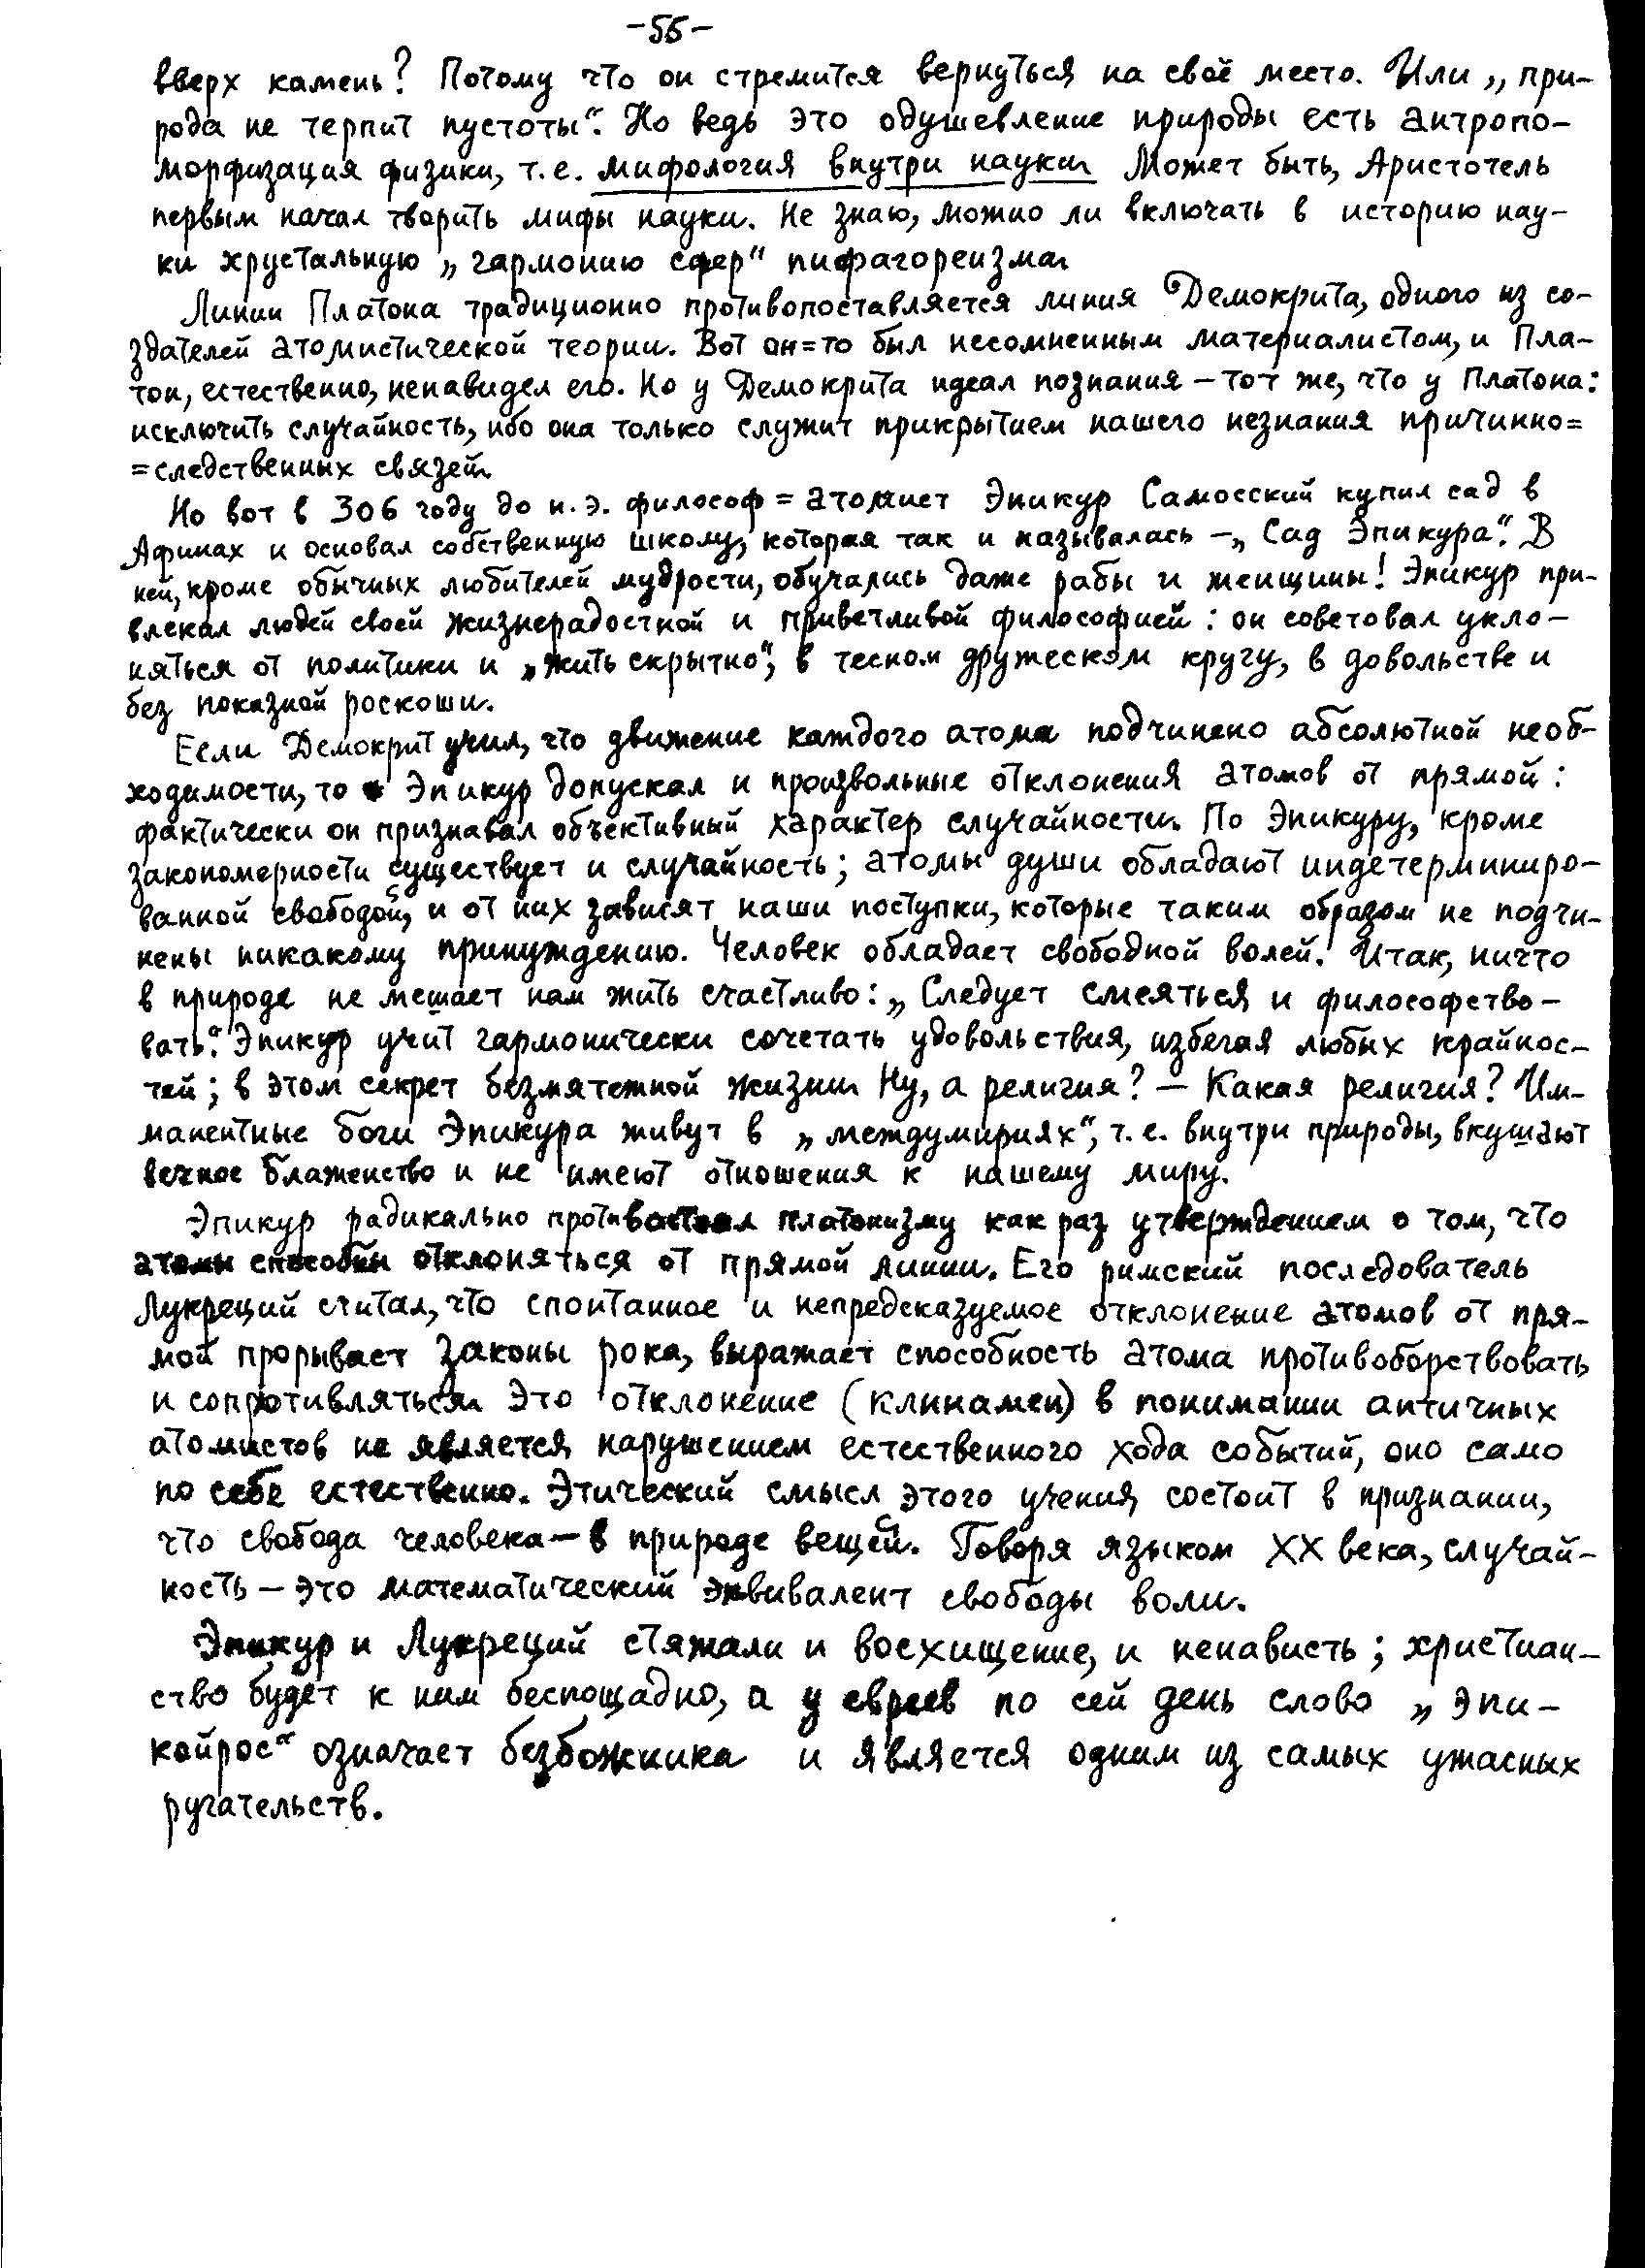 -55-
вверх камень? Потому что он стремится вернуться на своё место. Или „при-
рода не терпит пустоты“. Но ведь это одушевление природы есть антропо-
морфизация физики, т.е. мифология внутри науки. Может быть, Аристотель
первым начал творить мифы науки. Не знаю, можно ли включать в историю нау-
ки хрустальную „гармонию сфер“ пифагореизма.
Линии Платона традиционно противопоставляется линия Демокрита, одного из со-
здателей атомистической теории. Вот он=то был несомненным материалистом, и Пла-
тон, естественно, ненавидел его. Но у Демокрита идеал познания – тот же, что у Платона:
исключить случайность, ибо она только служит прикрытием нашего незнания причинно=
=следственных связей.
Но вот в 306 году до н.э. философ=атомист Эпикур Самосский купил сад в
Афинах и основал собственную школу, которая так и называлась –„Сад Эпикура“. В
ней, кроме обычных любителей мудрости, обучались даже рабы и женщины! Эпикур при-
влекал людей своей жизнерадостной и приветливой философией: он советовал укло-
няться от политики и „жить скрытно“, в тесном дружеском кругу, в довольстве и
без показной роскоши.
Если Демокрит учил, что движение каждого атома подчинено абсолютной необ-
ходимости, то Эпикур допускал и произвольные отклонения атомов от прямой:
фактически он признавал объективный характер случайности. По Эпикуру, кроме
закономерности существует и случайность; атомы души обладают индетерминиро-
ванной свободой, и от них зависят наши поступки, которые таким образом не подчи-
нены никакому принуждению. Человек обладает свободной волей. Итак, ничто
в природе не мешает нам жить счастливо: „Следует смеяться и философство-
вать“. Эпикур учит гармонически сочетать удовольствия, избегая любых крайнос-
тей; в этом секрет безмятежной жизни. Ну, а религия? – Какая религия? Им-
манентные боги Эпикура живут в „междумириях“, т.е. внутри природы, вкушают
вечное блаженство и не имеют отношения к нашему миру.
Эпикур радикально противостоял платонизму как раз утверждением о том, что
атомы способны отклоняться от прямой линии. Его римский последователь
Лукреций считал, что спонтанное и непредсказуемое отклонение атомов от пря-
мой прорывает законы рока, выражает способность атома противоборствовать
и сопротивляться. Это отклонение (клинамен) в понимании античных
атомистов не является нарушением естественного хода событий, оно само
по себе естественно. Этический смысл этого учения состоит в признании,
что свобода человека – в природе вещей. Говоря языком XX века, случай-
ность – это математический эквивалент свободы воли.
Эпикур и Лукреций стяжали и восхищение, и ненависть; христиан-
ство будет к ним беспощадно, а у евреев по сей день слово „эпи-
койрос“ означает безбожника и является одним из самых ужасных
ругательств.